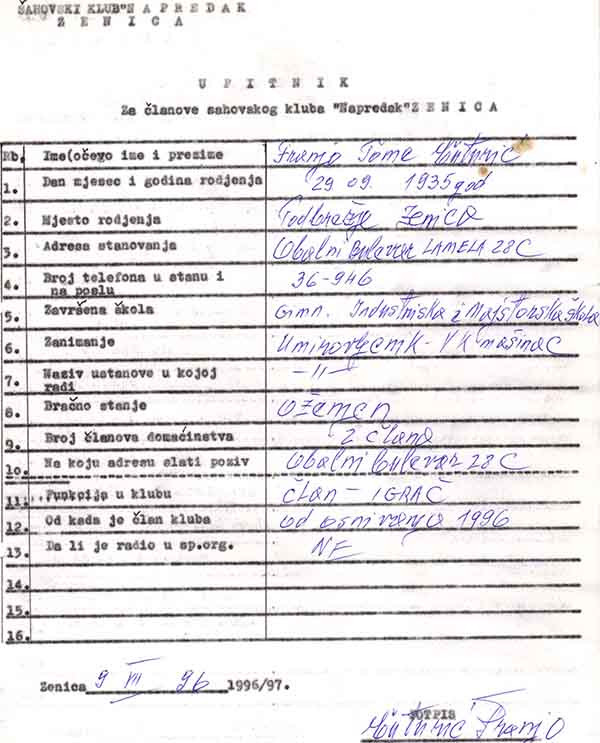 ŠAHOVSKI KLUB"N A P R E D A K
Z E N I C A
U P I T N I K
Za članove sahovskog kluba "Napredak"Z E N I C A
Rb. Ime(očevo ime i prezime Franjo Tome
1. Dan mjesec i godina rodjenja 29 09. 1935 god
2. Mjesto rodjenja Zenica
3. Adresa stanovanja Obalni Bulevar LAMELA 28C
4. Broj telefona u stanu i
na poslu 36-946
5. Završena škola Gimn. Industriska i Majstorska škola
6. Zanimanje Umirovljenik - VK mašinac
7. Naziv ustanove u kojoj
radi -11-
8. Bračno stanje Oženjen
9. Broj članova domaćinstva 2 člana
10. Na koju adresu slati poziv Obalni Bulevar 28C
11. Funkcija u klubu ČLAN - IGRAČ
12. Od kada je član kluba od osnivanja 1996
13. Da li je radio u sp.org. NE
14.
15.
16.
Zenica 9 VII 96 1996/97.
POTPIS
Franjo